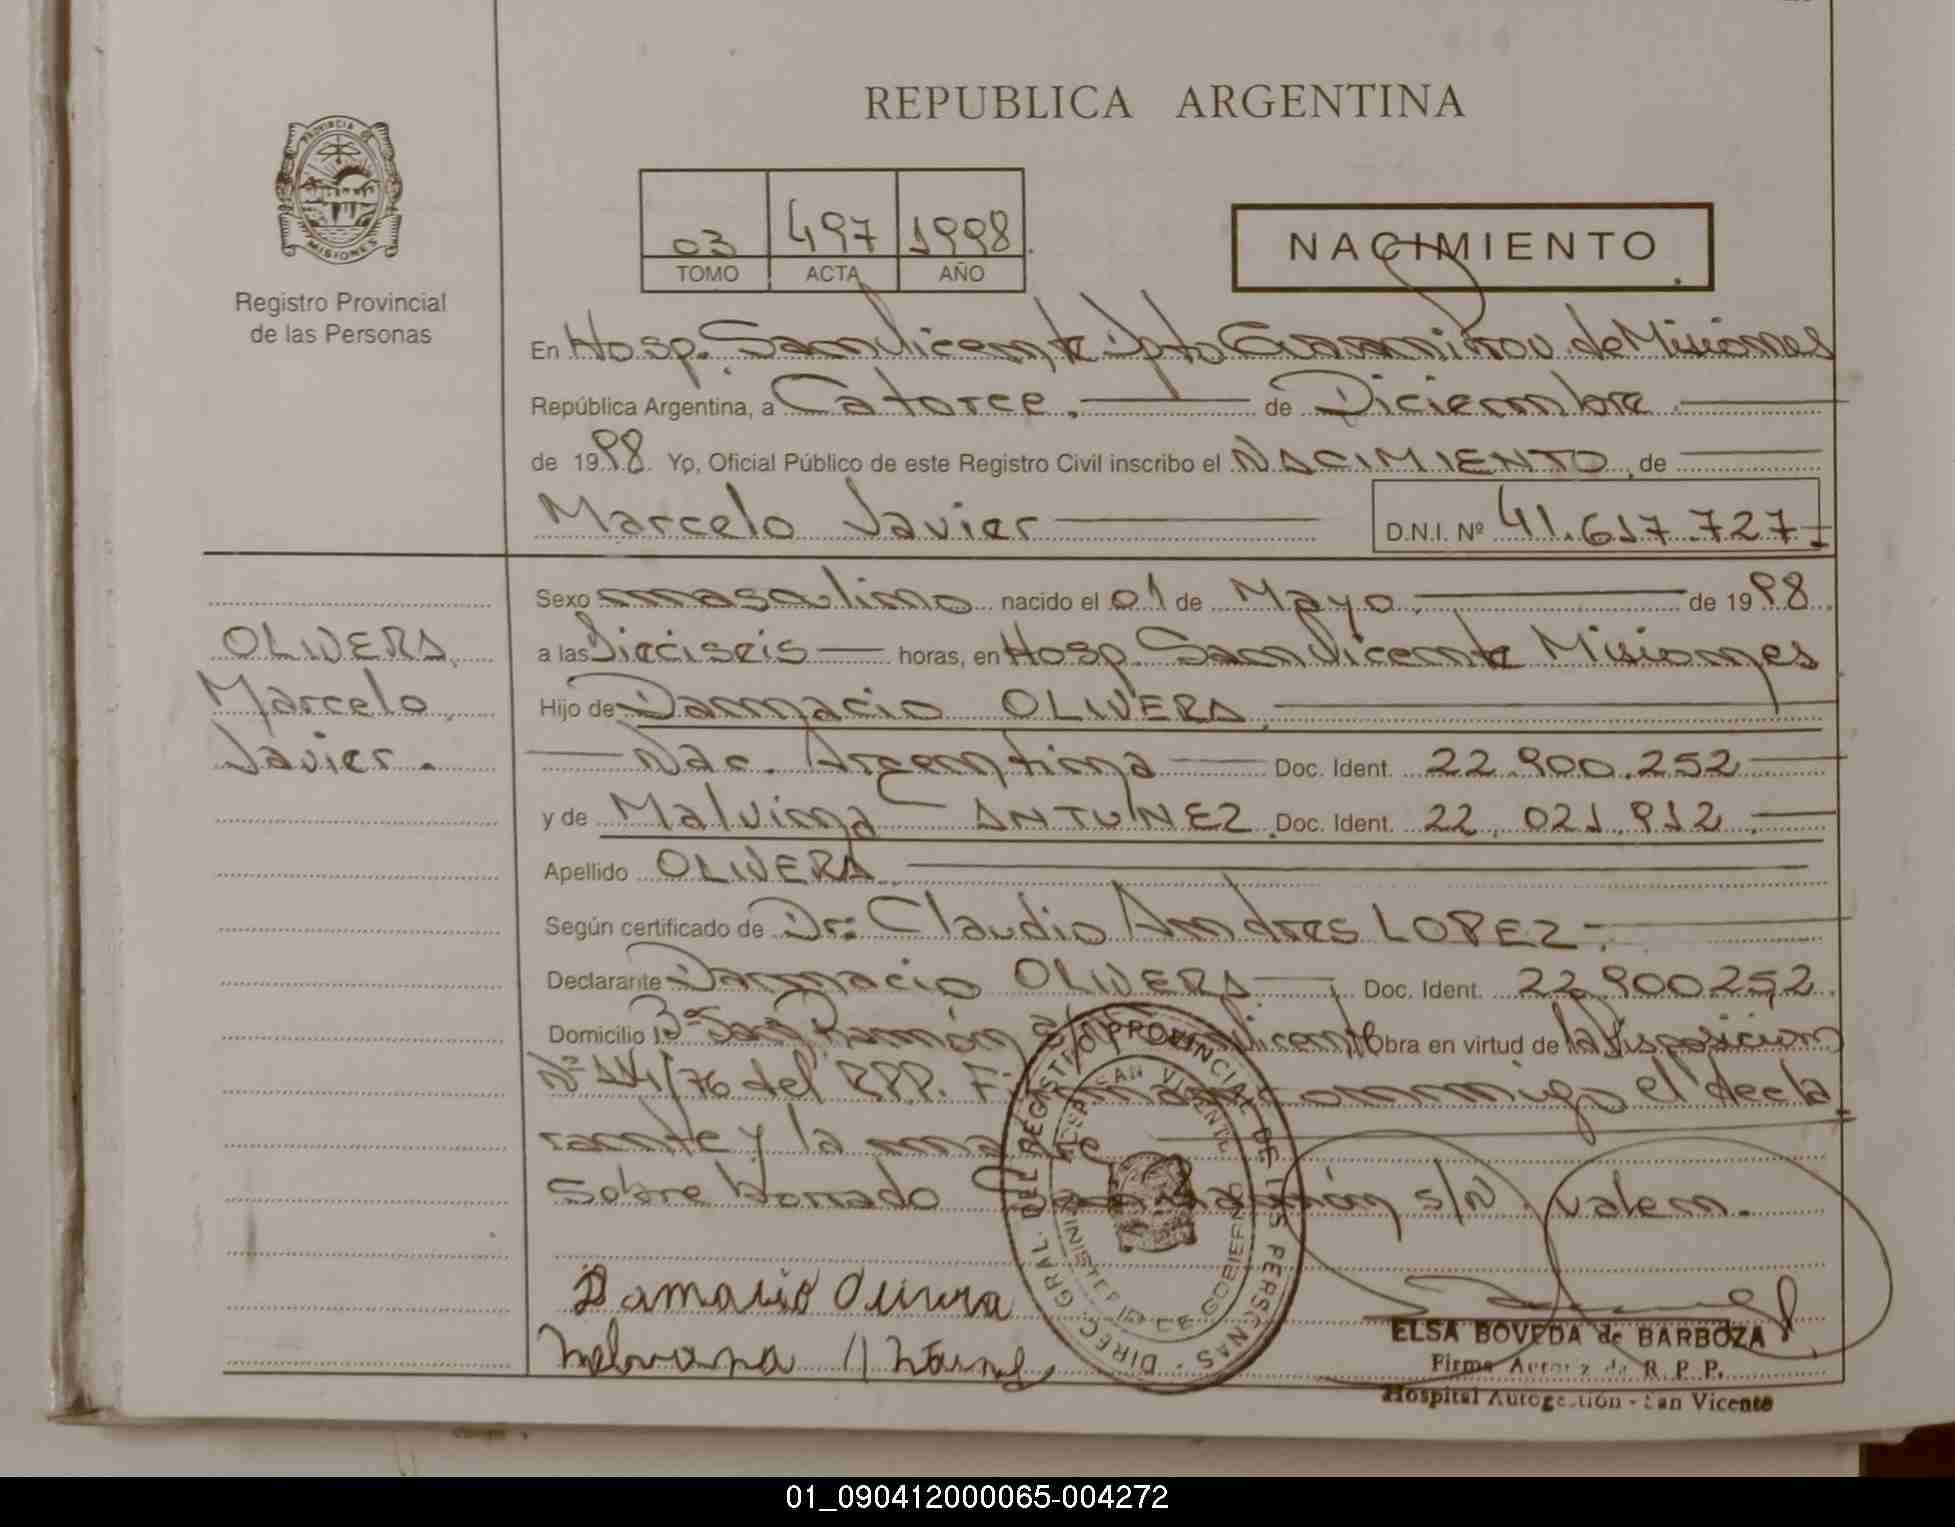 REPUBLICA ARGENTINA
PROVINCIA DE
MISIONES
Registro Provincial
de las Personas
03 497 1998
TOMO ACTA AÑO
NACIMIENTO
En Hosp. San Vicente Dpto Guaraní Prov. de Misiones
República Argentina, a Catorce. de Diciembre.
de 1998. Yo, Oficial Público de este Registro Civil inscribo el NACIMIENTO, de
Marcelo Javier D.N.I. Nº 41.617.727
Sexo masculino nacido el 01 de Mayo. de 1998.
a las Dieciseis horas, en Hosp. San Vicente Misiones
Hijo de Damacio OLIVERA,
Nac. Argentina Doc. Ident. 22.900.252
y de Malvina ANTUNEZ Doc. Ident. 22.021.912.
Apellido OLIVERA
Según certificado de Dr: Claudio Andres LOPEZ.
Declarante Damacio OLIVERA Doc. Ident. 22.900252.
Domicilio Bº San Ramón s/n San Vicente Obra en virtud de la Disposicion
Nº 141/76 del RPP. Firman conmigo el decla-
rante y la madre
Sobre borrado San Ramón s/N valen.
OLIVERA,
Marcelo
Javier.
DIREC. GRAL. DEL REGISTRO PROVINCIAL DE LAS PERSONAS
HOSP. SAN VICENTE
MINISTERIO DE GOBIERNO
Damacio Olivera
ELSA BOVEDA de BARBOZA
Firma Autoriz da R. P. P.
Hospital Autogestión - San Vicente
01_090412000065-004272